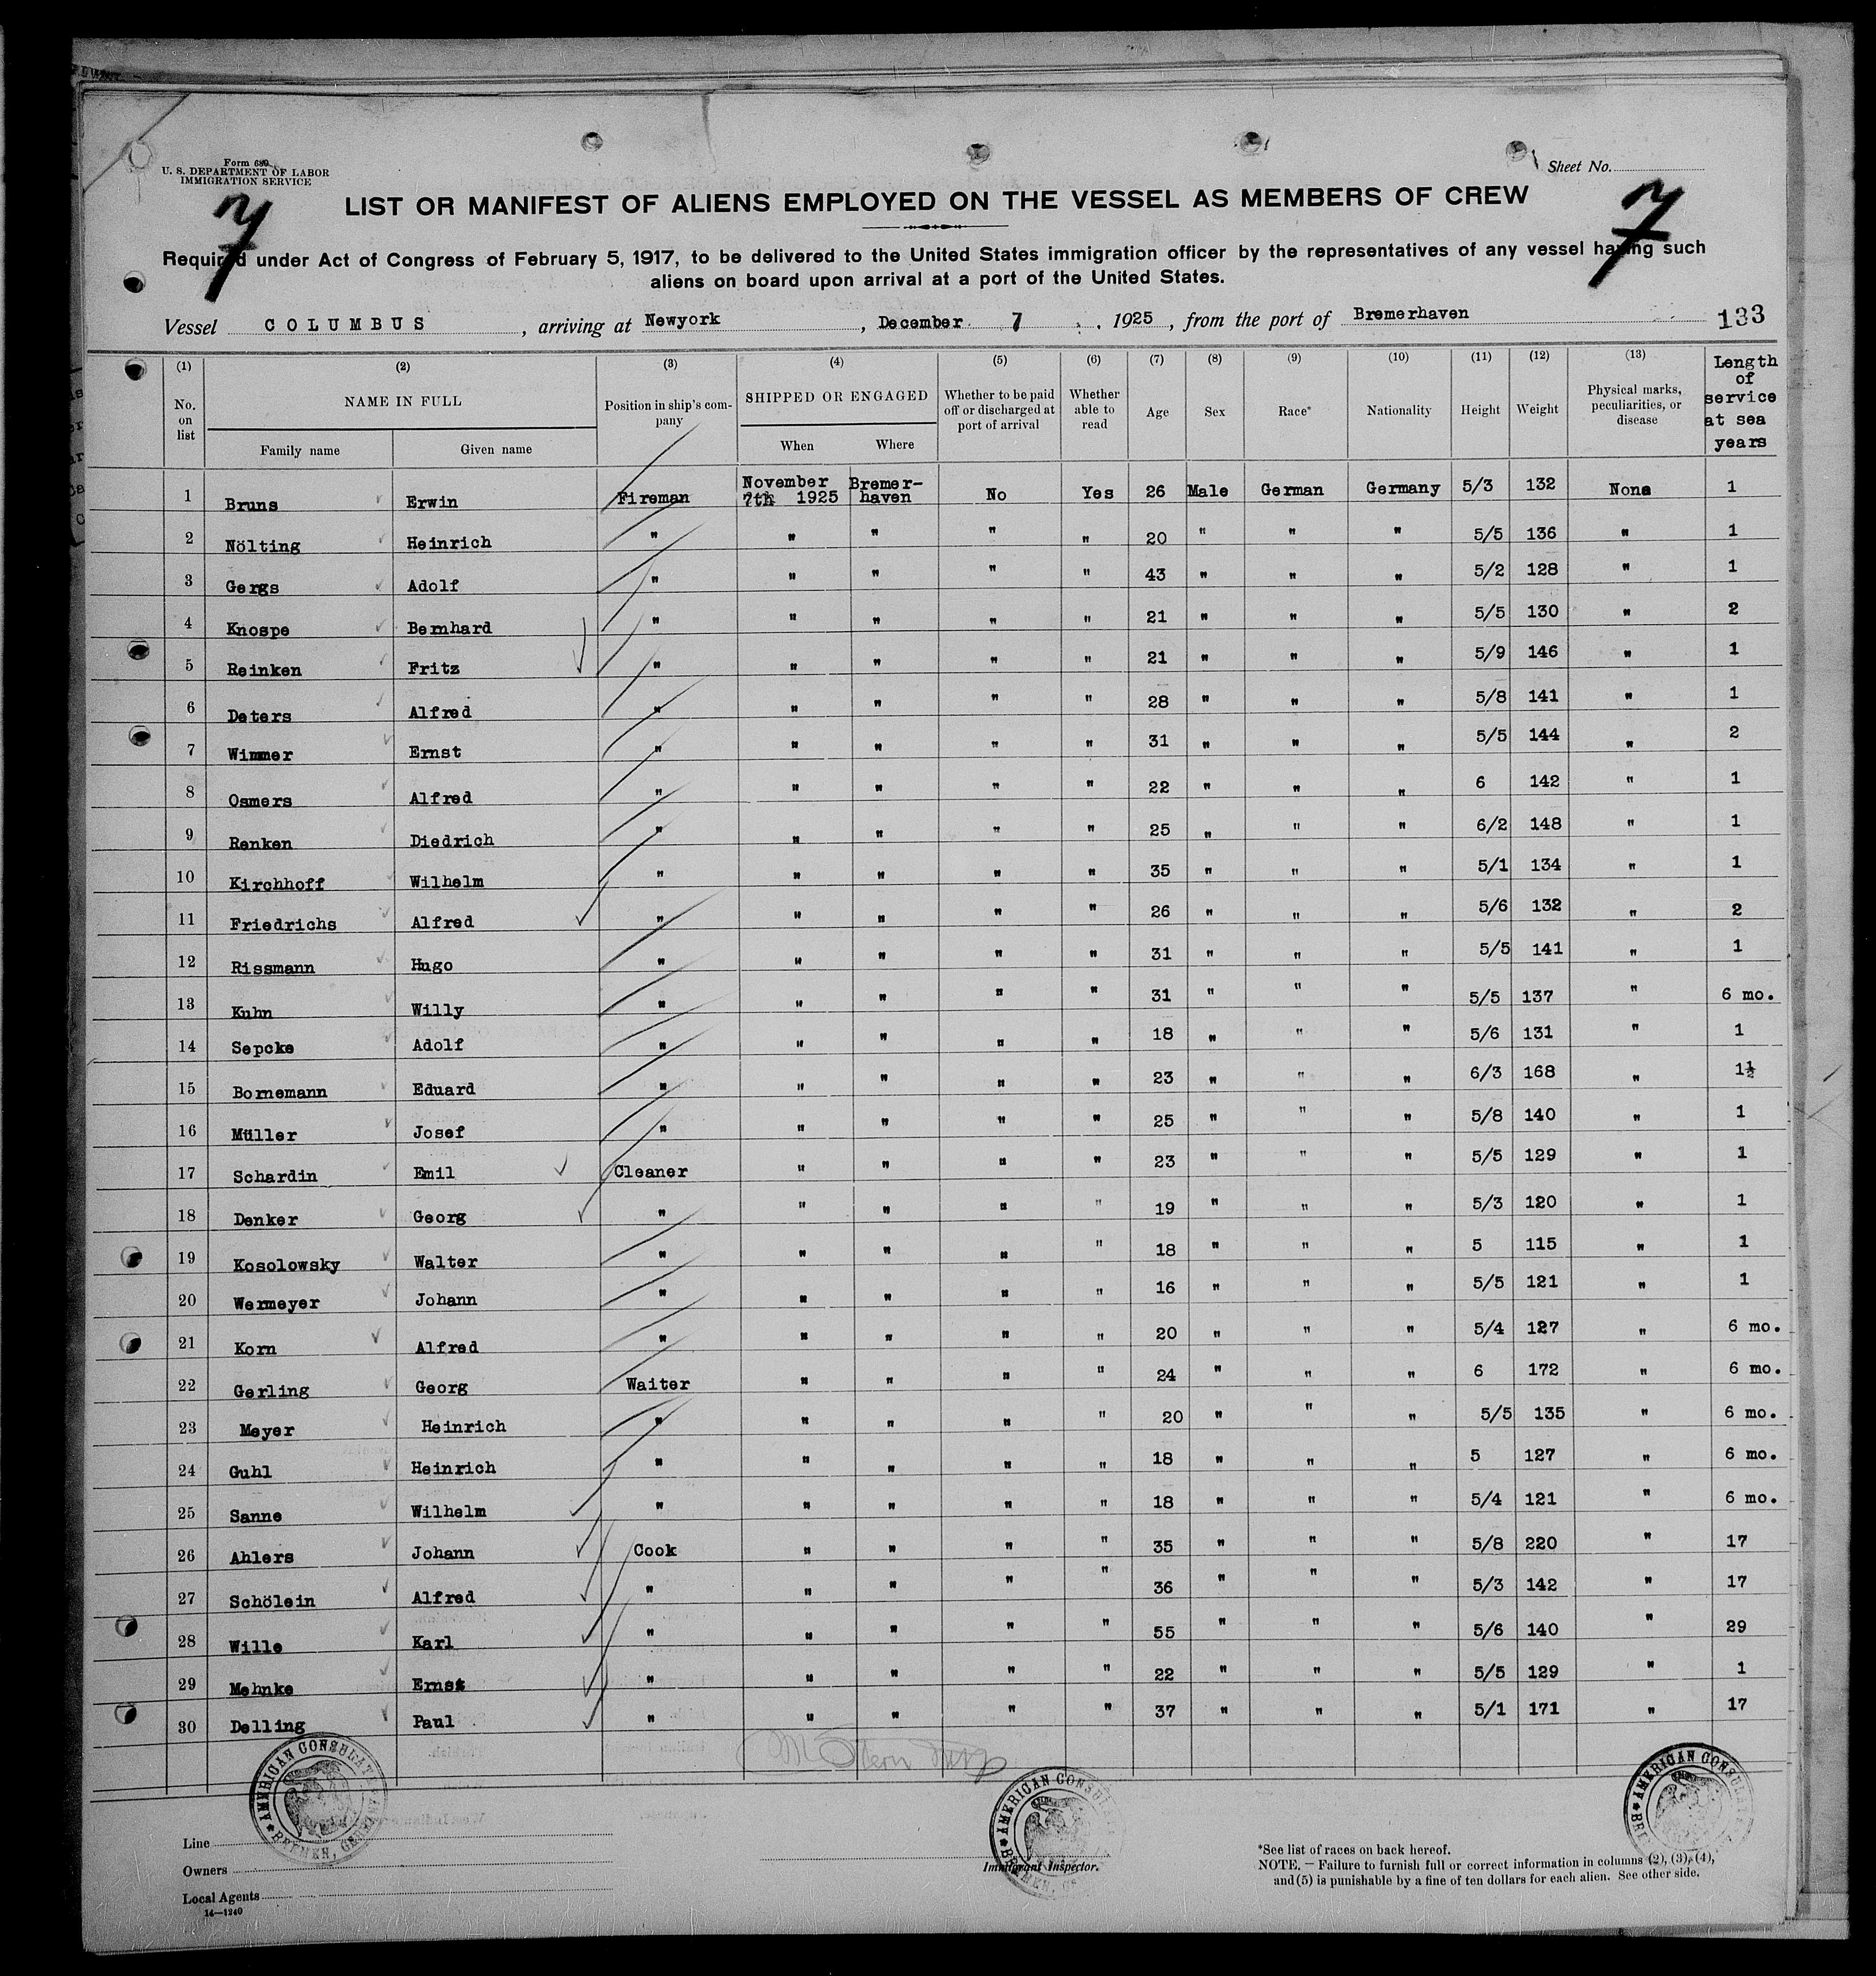 Form 680
U. S. DEPARTMENT OF LABOR
IMMIGRATION SERVICE
Sheet No.
7
7
LIST OR MANIFEST OF ALIENS EMPLOYED ON THE VESSEL AS MEMBERS OF CREW
Required under Act of Congress of February 5, 1917, to be delivered to the United States immigration officer by the representatives of any vessel having such
aliens on board upon arrival at a port of the United States.
Vessel COLUMBUS, arriving at Newyork, December 7, 1925, from the port of Bremerhaven 133
(1) (2) (3) (4) (5) (6) (7) (8) (9) (10) (11) (12) (13)
No. on list NAME IN FULL Position in ship's company SHIPPED OR ENGAGED Whether to be paid off or discharged at port of arrival Whether able to read Age Sex Race* Nationality Height Weight Physical marks, peculiarities, or disease Length of service at sea years
Family name Given name When Where
1 Bruns Erwin Fireman November 7th 1925 Bremer-haven No Yes 26 Male German Germany 5/3 132 None 1
2 Nölting Heinrich " " " " " 20 " " " 5/5 136 " 1
3 Gergs Adolf " " " " " 43 " " " 5/2 128 " 1
4 Knospe Bernhard " " " " " 21 " " " 5/5 130 " 2
5 Reinken Fritz " " " " " 21 " " " 5/9 146 " 1
6 Deters Alfred " " " " " 28 " " " 5/8 141 " 1
7 Wimmer Ernst " " " " " 31 " " " 5/5 144 " 2
8 Osmers Alfred " " " " " 22 " " " 6 142 " 1
9 Renken Diedrich " " " " " 25 " " " 6/2 148 " 1
10 Kirchhoff Wilhelm " " " " " 35 " " " 5/1 134 " 1
11 Friedrichs Alfred " " " " " 26 " " " 5/6 132 " 2
12 Rissmann Hugo " " " " " 31 " " " 5/5 141 " 1
13 Kuhn Willy " " " " " 31 " " " 5/5 137 " 6 mo.
14 Sepcke Adolf " " " " " 18 " " " 5/6 131 " 1
15 Bornemann Eduard " " " " " 23 " " " 6/3 168 " 1½
16 Müller Josef " " " " " 25 " " " 5/8 140 " 1
17 Schardin Emil Cleaner " " " " 23 " " " 5/5 129 " 1
18 Denker Georg " " " " " 19 " " " 5/3 120 " 1
19 Kosolowsky Walter " " " " " 18 " " " 5 115 " 1
20 Wermeyer Johann " " " " " 16 " " " 5/5 121 " 1
21 Korn Alfred " " " " " 20 " " " 5/4 127 " 6 mo.
22 Gerling Georg Waiter " " " " 24 " " " 6 172 " 6 mo.
23 Meyer Heinrich " " " " " 20 " " " 5/5 135 " 6 mo.
24 Guhl Heinrich " " " " " 18 " " " 5 127 " 6 mo.
25 Sanne Wilhelm " " " " " 18 " " " 5/4 121 " 6 mo.
26 Ahlers Johann Cook " " " " 35 " " " 5/8 220 " 17
27 Schölein Alfred " " " " " 36 " " " 5/3 142 " 17
28 Wille Karl " " " " " 55 " " " 5/6 140 " 29
29 Mehnke Ernst " " " " " 22 " " " 5/5 129 " 1
30 Delling Paul " " " " " 37 " " " 5/1 171 " 17
AMERICAN CONSULATE BREMEN, GERMANY
AMERICAN CONSUL
AMERICAN CONSUL
Line
Owners
Local Agents
14—1240
Immigrant Inspector.
*See list of races on back hereof.
NOTE. — Failure to furnish full or correct information in columns (2), (3), (4),
and (5) is punishable by a fine of ten dollars for each alien. See other side.